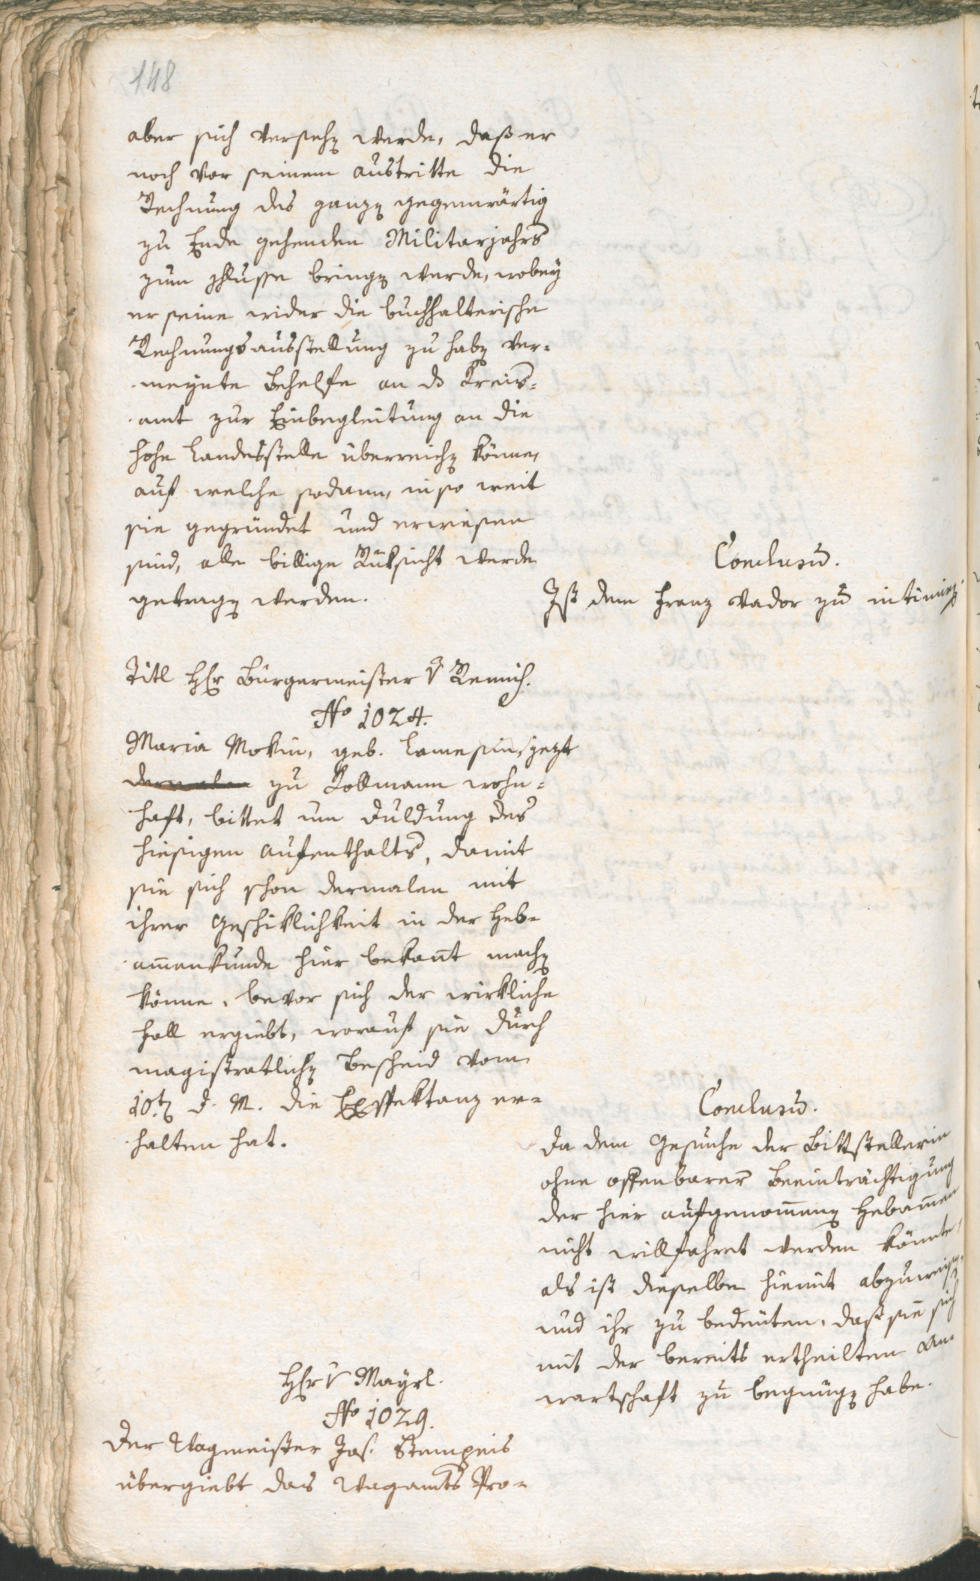 148
aber sich versehen werde, daß er
noch vor seinem austritte die
Rechnung des ganzen gegenwärtig
zu Ende gehenden Militarjahrs
zum schlusse bringen werde, wobey
er seine wider die buchhalterische
Rechnungsausstellung zu haben ver=
meynte Behelfe an das Kreis=
amt zur Einbegleitung an die
hohe Landesstelle überreichen könne,
auf welche sodann, in so weit
sie gegründet und erwiesen
sind, alle billige Rüksicht werde
getragen werden.
Conclusum.
Ist dem Franz Vador zu intimiren
Titl Herr Bürgermeister v Remich.
No 1024.
Maria Mokin, geb. Lamesin, jezt
dermalen zu Kollmann wohn=
haft, bittet um Duldung des
hiesigen aufenthalts, damit
sie sich schon dermalen mit
ihrer Geschiklichkeit in der Heb=
ammenkunde hier bekannt machen
könne, bevor sich der wirkliche
Fall ergiebt, worauf sie durch
magistratlichen Bescheid vom
10ten d. M. die Exspektanz er=
halten hat.
Conclusum.
Da dem Gesuche der Bittstellerin
ohne offenbarer Beeinträchtigung
der hier aufgenommenen Hebammen
nicht willfahret werden könnte,
als ist dieselbe hiemit abzuweisen,
und ihr zu bedeuten, daß sie sich
mit der bereits ertheilten An=
wartschaft zu begnügen habe.
Herr v Mayrl.
No 1029.
Der Wagmeister Jos. Stempeis
übergiebt das Wagamts Pro=